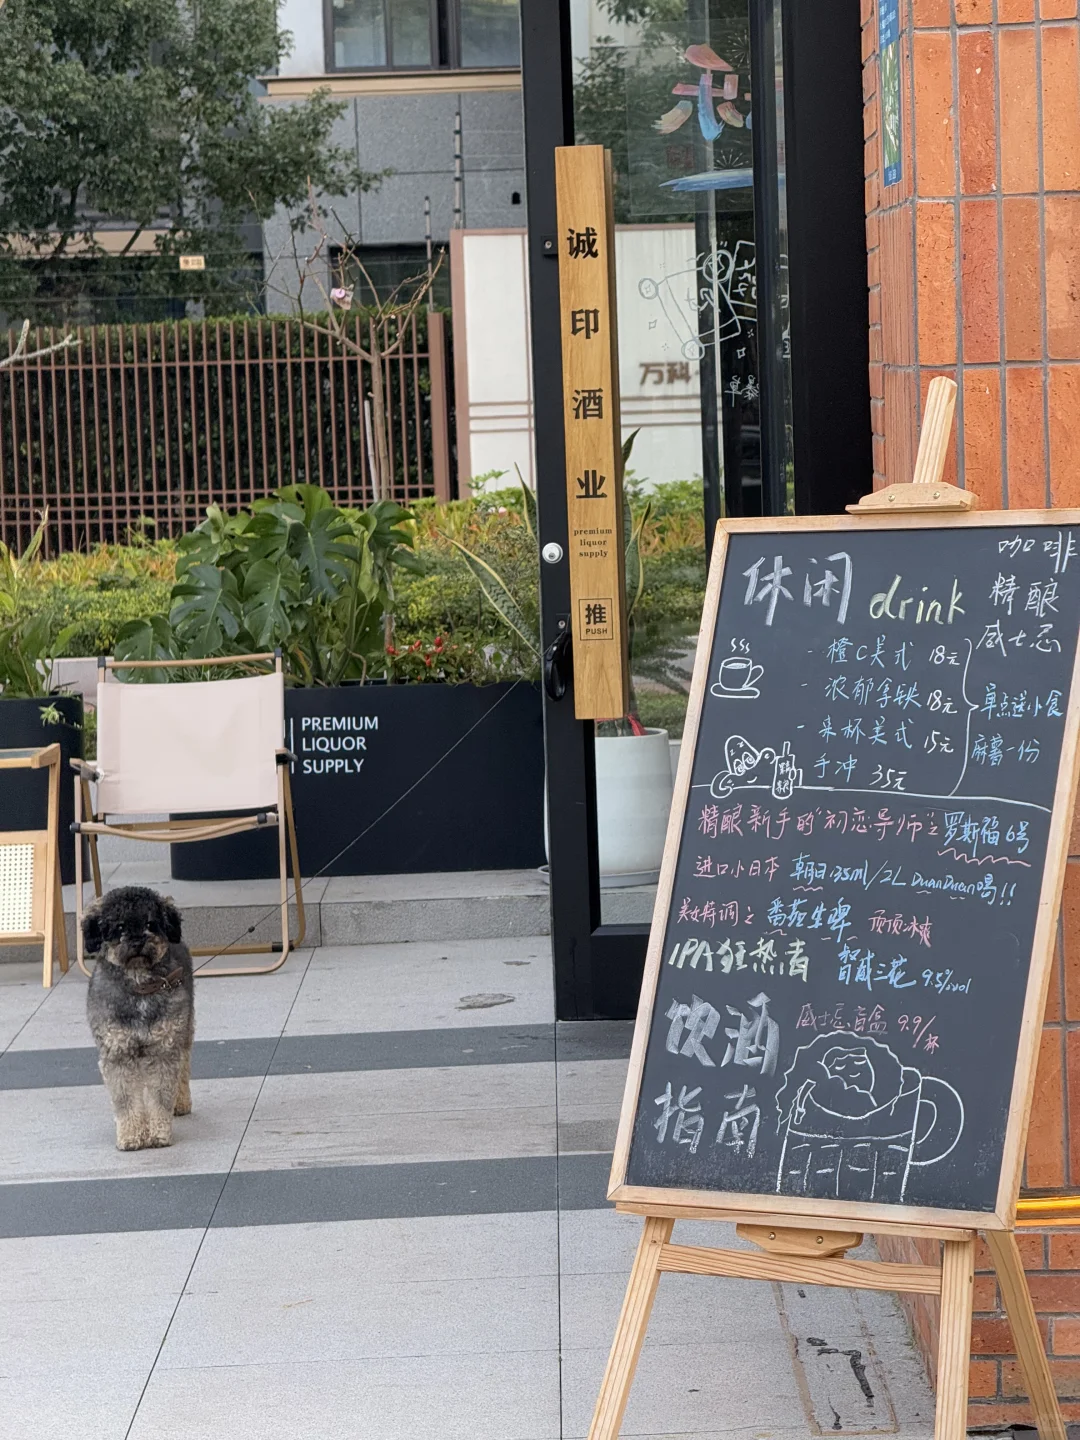 诚印酒业
premium
liquor
supply
推
PUSH
万科
PREMIUM
LIQUOR
SUPPLY
咖啡
休闲 drink 精酿
威士忌
- 橙C美式 18元
- 浓郁拿铁 18元
- 来杯美式 15元
手冲 35元
单点送小食
麻薯一份
精酿新手的"初恋导师"之罗斯福6号
进口小日本 朝日135ml/2L DuanDuan喝!!
美女特调之番茄生啤 顶顶冰爽
IPA狂热者 智威三花 9.5%vol
饮酒
指南
威士忌盲盒 9.9/杯